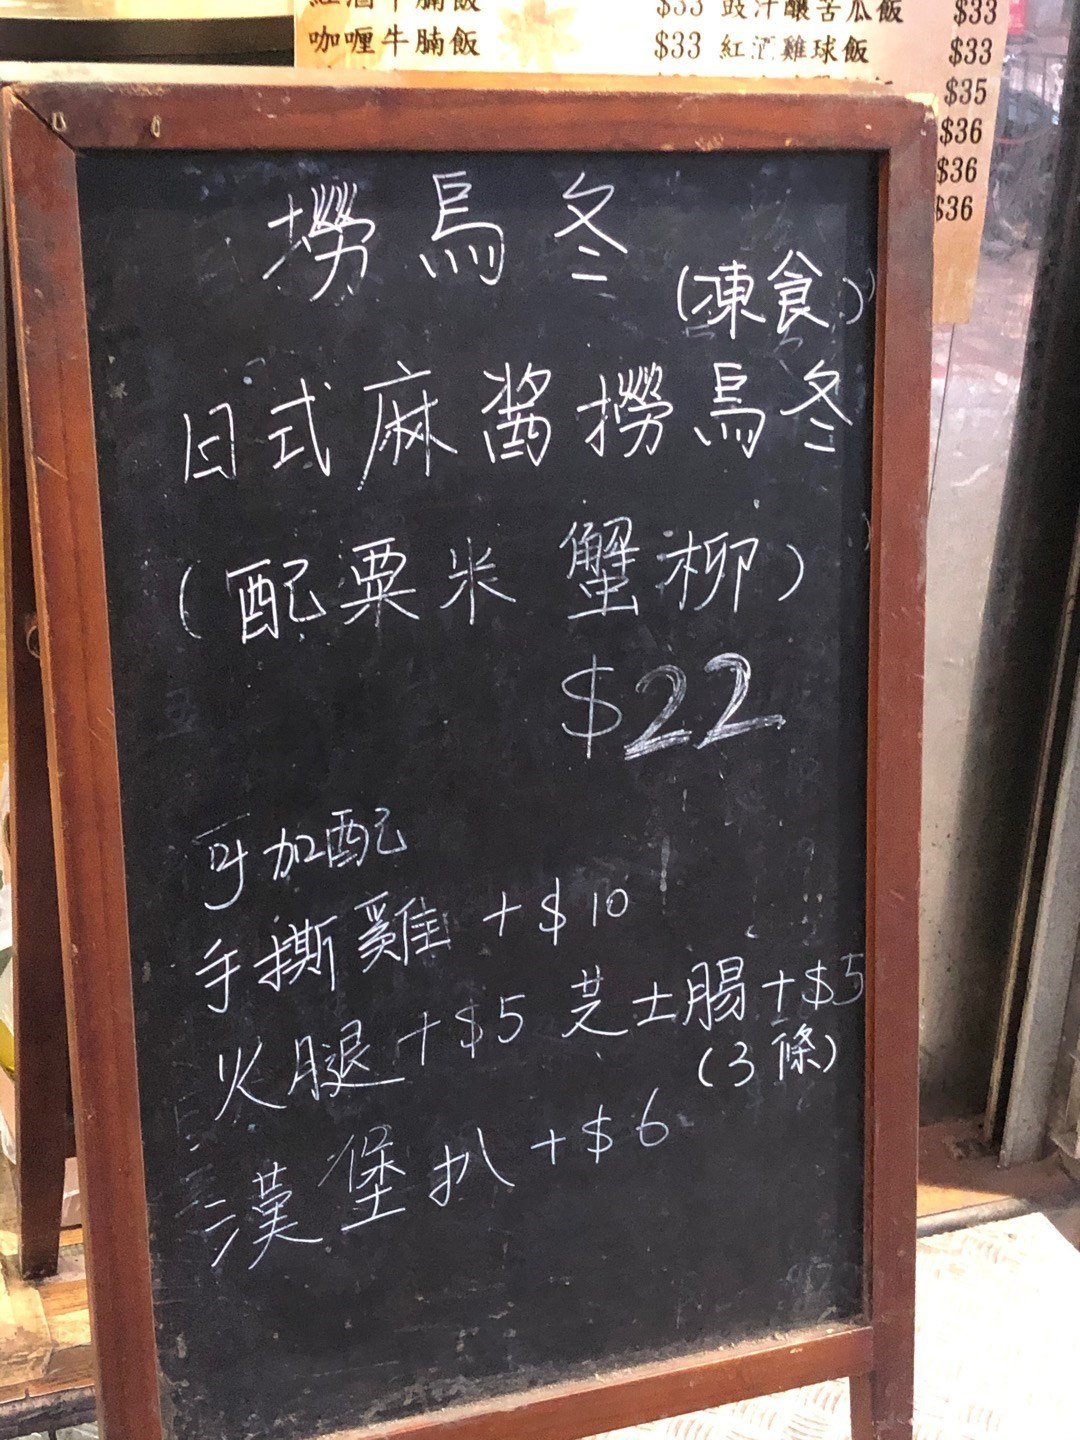 咖喱牛腩飯 $33 紅酒雞球飯 $33
豉汁釀苦瓜飯 $33
$35
$36
$36
$36
撈烏冬
(凍食)
日式麻酱撈烏冬
(配粟米 蟹柳)
$22
可加配
手撕雞 +$10
火腿+$5 芝士腸+$5
(3條)
漢堡扒+$6